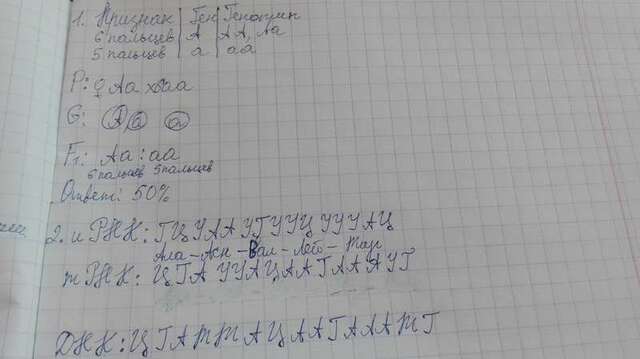 1. Признак | Ген | Генотип
6 пальцев | А | АА, Аа
5 пальцев | а | аа
Р: ♀ Аа х ♂аа
G: А а а
F₁: Аа : аа
6 пальцев 5 пальцев
Ответ: 50%
2. и РНК: ГЦУААУГУУЦУУУАЦ
Ала – Асп – Вал – Лей – Тир
т РНК: ЦГАУУАЦААГАААУГ
ДНК: ЦГАТТАЦААГАААТГ